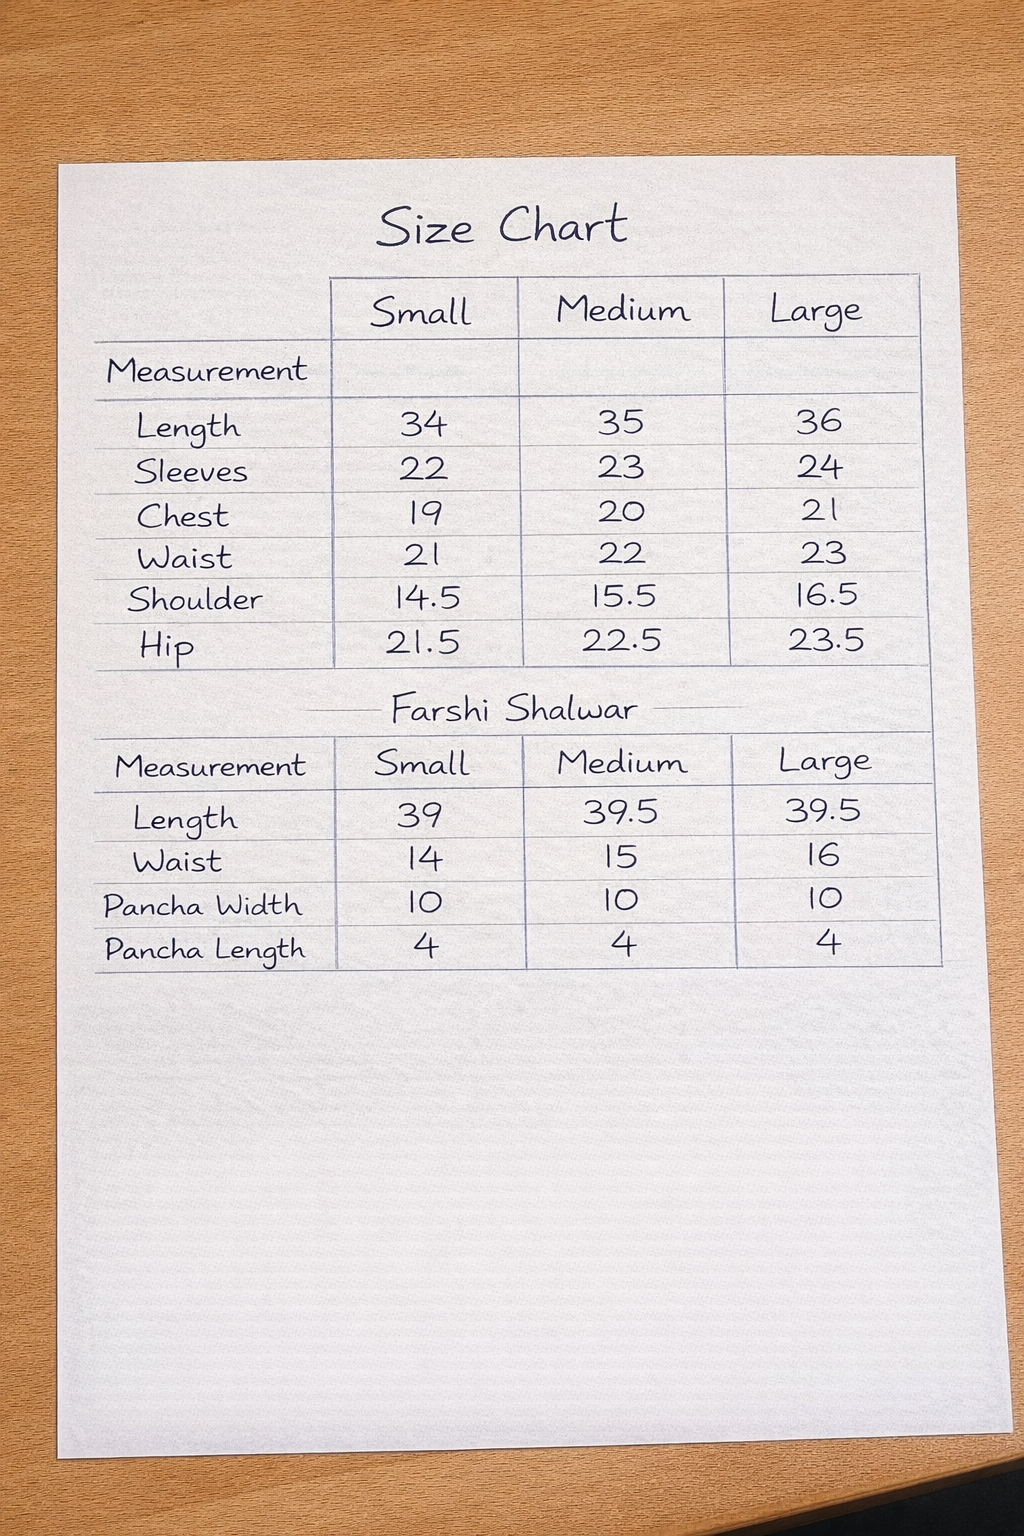 Size Chart
Small Medium Large
Measurement
Length 34 35 36
Sleeves 22 23 24
Chest 19 20 21
Waist 21 22 23
Shoulder 14.5 15.5 16.5
Hip 21.5 22.5 23.5
Farshi Shalwar
Measurement Small Medium Large
Length 39 39.5 39.5
Waist 14 15 16
Pancha Width 10 10 10
Pancha Length 4 4 4